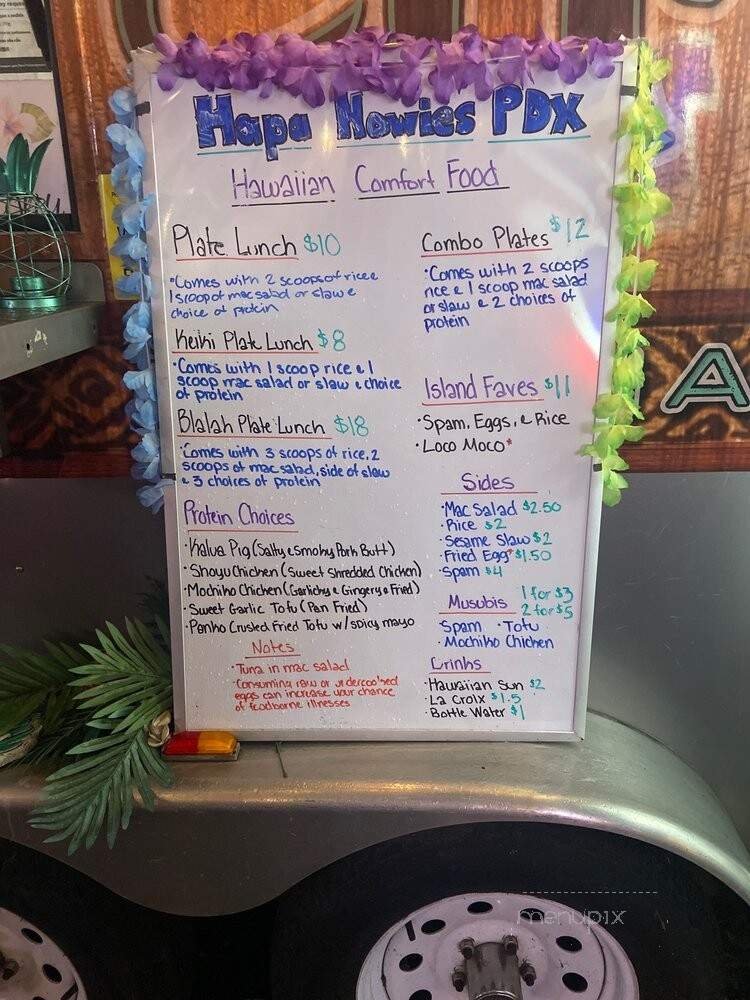 Hapa Howies PDX
Hawaiian Comfort Food
Plate Lunch $10
·Comes with 2 scoops of rice e
1 scoop of mac salad or slaw e
choice of protein
Keiki Plate Lunch $8
·Comes with 1 scoop rice e 1
scoop mac salad or slaw e choice
of protein
Blalah Plate Lunch $18
·Comes with 3 scoops of rice, 2
scoops of mac salad, side of slaw
e 3 choices of protein
Protein Choices
·Kalua Pig (Salty e Smoky Pork Butt)
·Shoyu Chicken (Sweet Shredded Chicken)
·Mochiko Chicken (Garlicky e Gingery e Fried)
·Sweet Garlic Tofu (Pan Fried)
·Panko Crusted Fried Tofu w/ spicy mayo
Notes
·Tuna in mac salad
·Consuming raw or undercooked
eggs can increase your chance
of foodborne illnesses
Combo Plates $12
·Comes with 2 scoops
rice e 1 scoop mac salad
or slaw e 2 choices of
protein
Island Faves $11
·Spam, Eggs, e Rice
·Loco Moco*
Sides
·Mac Salad $2.50
·Rice $2
·Sesame Slaw $2
·Fried Egg* $1.50
·Spam $4
Musubis 1 for $3
2 for $5
·Spam ·Tofu
·Mochiko Chicken
Drinks
·Hawaiian Sun $2
·La Croix $1.5
·Bottle Water $1
A
menupix